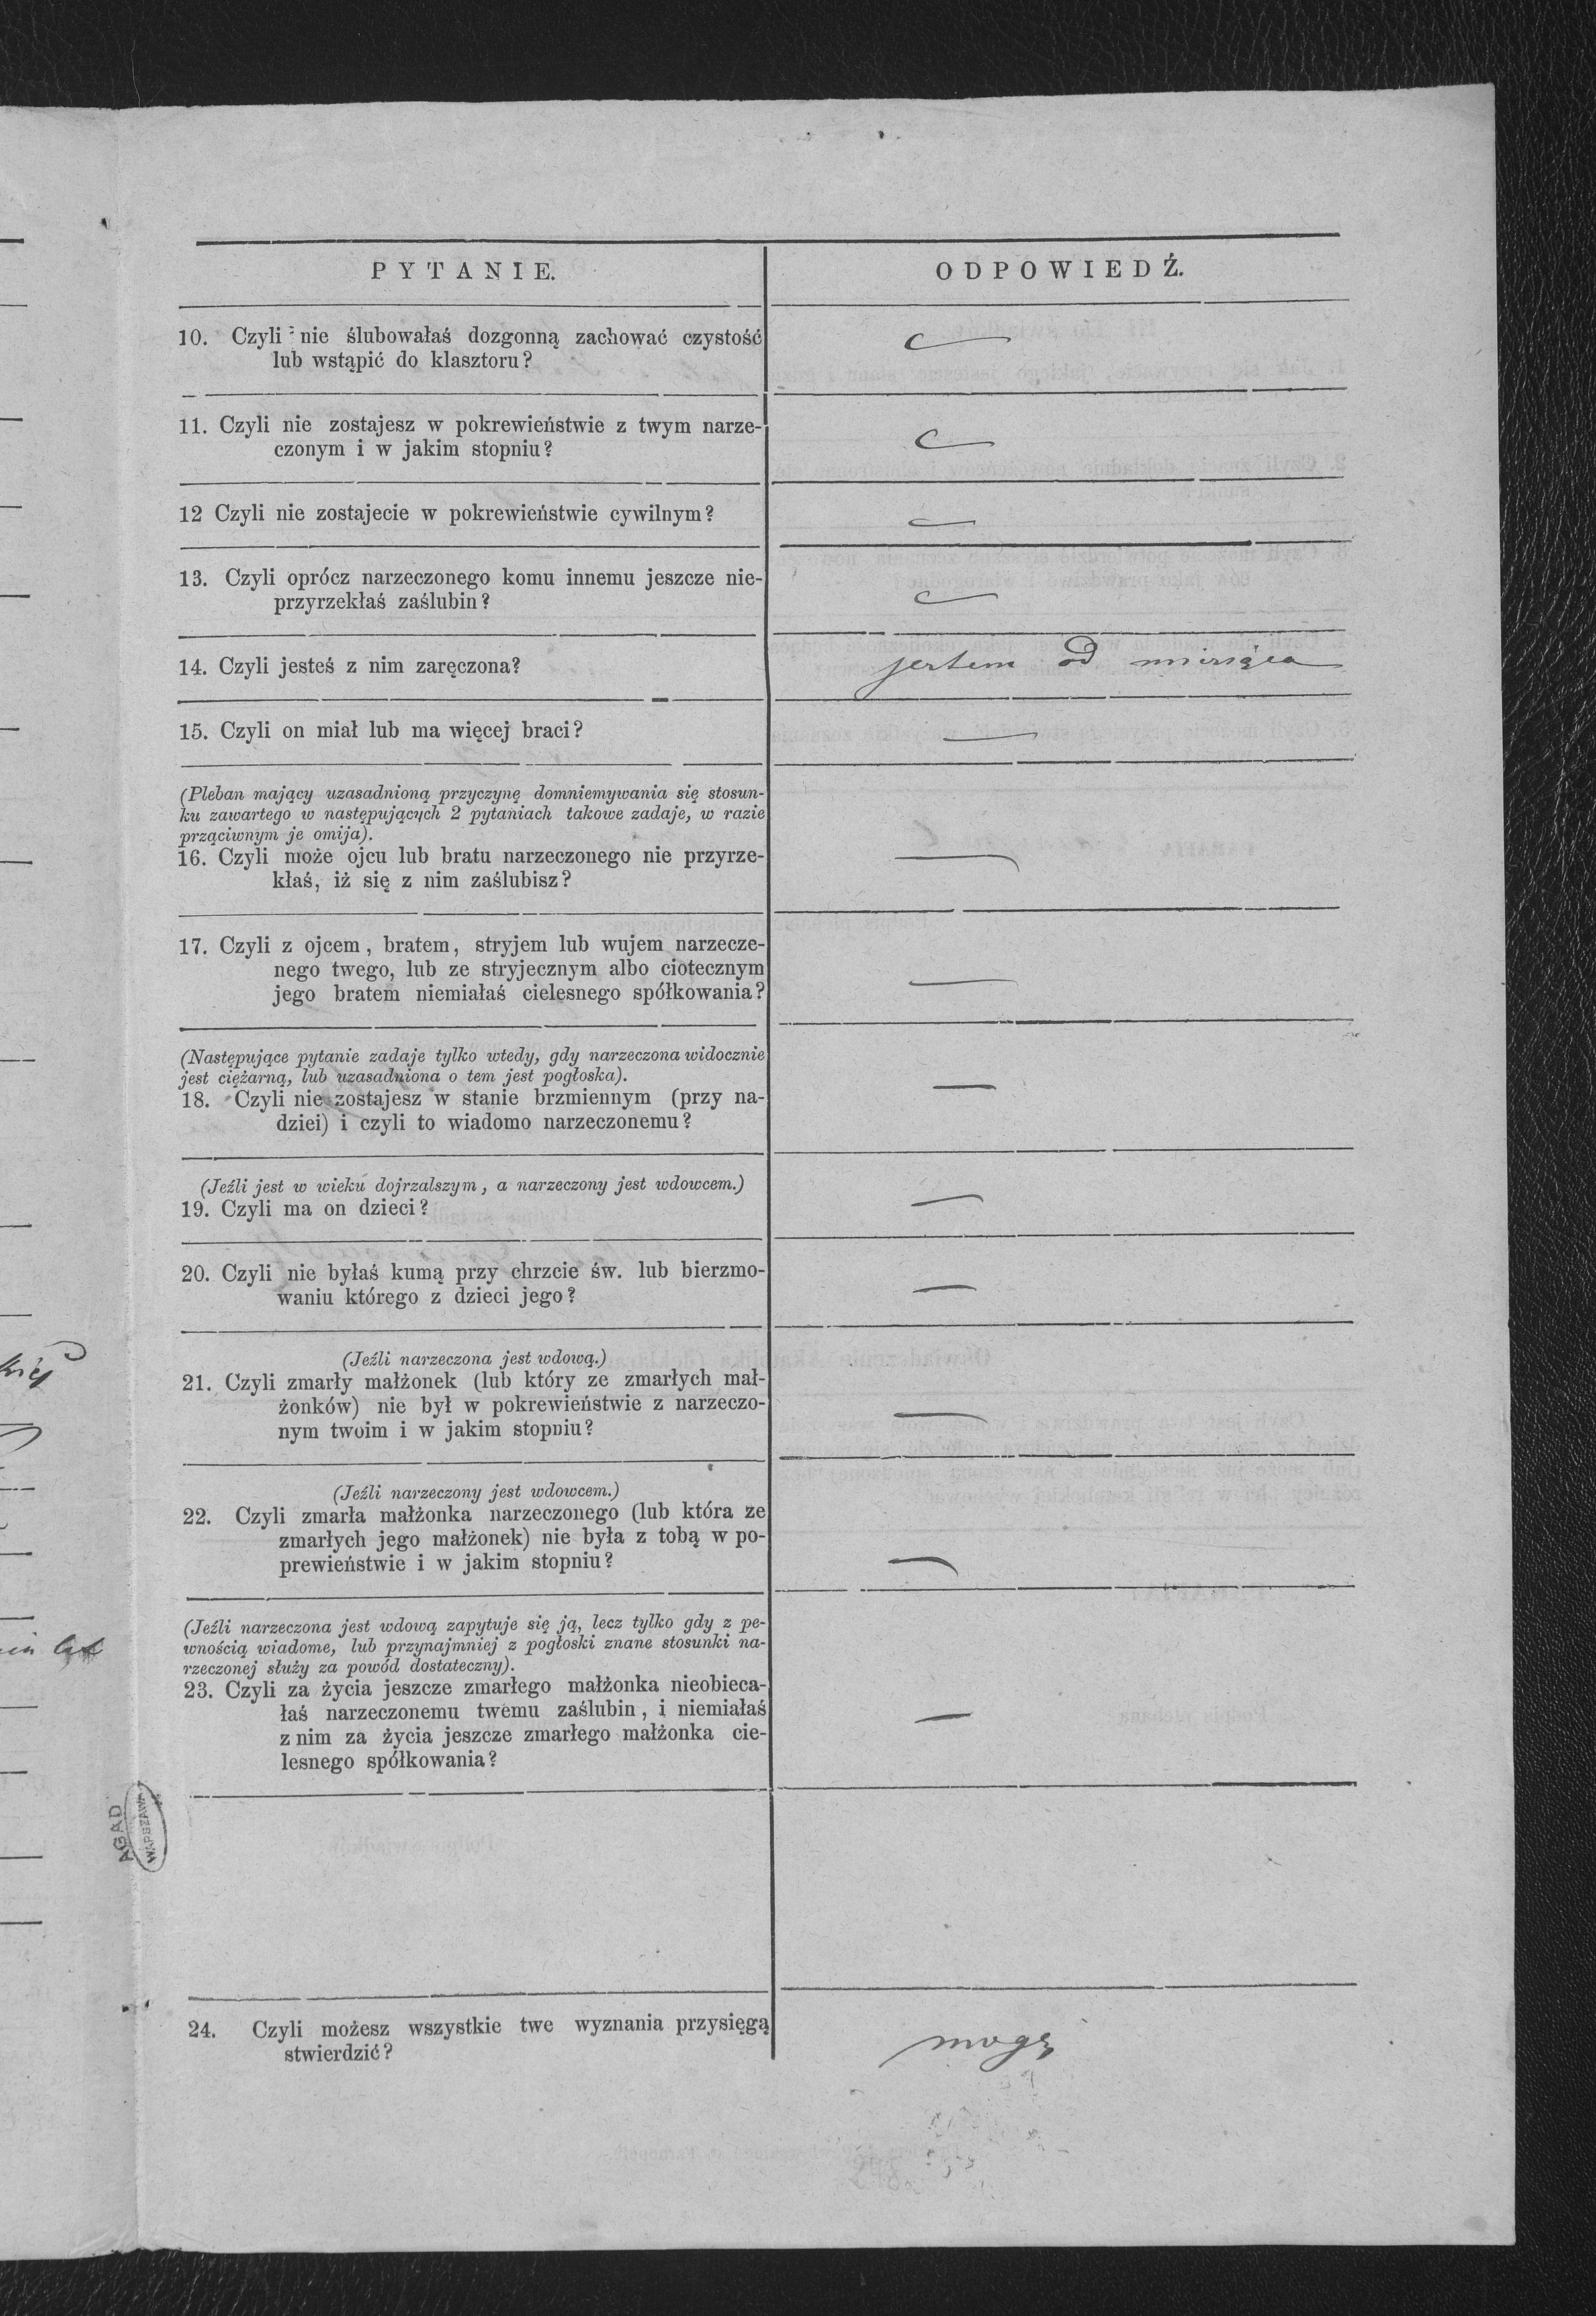 PYTANIE.
ODPOWIEDŹ.
10. Czyli nie ślubowałaś dozgonną zachować czystość
lub wstąpić do klasztoru?
11. Czyli nie zostajesz w pokrewieństwie z twym narze-
czonym i w jakim stopniu?
12 Czyli nie zostajecie w pokrewieństwie cywilnym?
13. Czyli oprócz narzeczonego komu innemu jeszcze nie-
przyrzekłaś zaślubin?
14. Czyli jesteś z nim zaręczona?
jestem od miesiąca
15. Czyli on miał lub ma więcej braci?
(Pleban mający uzasadnioną przyczynę domniemywania się stosun-
ku zawartego w następujących 2 pytaniach takowe zadaje, w razie
prząciwnym je omija).
16. Czyli może ojcu lub bratu narzeczonego nie przyrze-
kłaś, iż się z nim zaślubisz?
17. Czyli z ojcem, bratem, stryjem lub wujem narzecze-
nego twego, lub ze stryjecznym albo ciotecznym
jego bratem niemiałaś cielesnego spółkowania?
(Następujące pytanie zadaje tylko wtedy, gdy narzeczona widocznie
jest ciężarną, lub uzasadniona o tem jest pogłoska).
18. Czyli nie zostajesz w stanie brzmiennym (przy na-
dziei) i czyli to wiadomo narzeczonemu?
(Jeźli jest w wieku dojrzalszym, a narzeczony jest wdowcem.)
19. Czyli ma on dzieci?
20. Czyli nie byłaś kumą przy chrzcie św. lub bierzmo-
waniu którego z dzieci jego?
(Jeźli narzeczona jest wdową.)
21. Czyli zmarły małżonek (lub który ze zmarłych mał-
żonków) nie był w pokrewieństwie z narzeczo-
nym twoim i w jakim stopniu?
(Jeźli narzeczony jest wdowcem.)
22. Czyli zmarła małżonka narzeczonego (lub która ze
zmarłych jego małżonek) nie była z tobą w po-
prewieństwie i w jakim stopniu?
(Jeźli narzeczona jest wdową zapytuje się ją, lecz tylko gdy z pe-
wnością wiadome, lub przynajmniej z pogłoski znane stosunki na-
rzeczonej służy za powód dostateczny).
23. Czyli za życia jeszcze zmarłego małżonka nieobieca-
łaś narzeczonemu twemu zaślubin, i niemiałaś
z nim za życia jeszcze zmarłego małżonka cie-
lesnego spółkowania?
AGAD
WARSZAWA
24. Czyli możesz wszystkie twe wyznania przysięgą
stwierdzić?
mogę